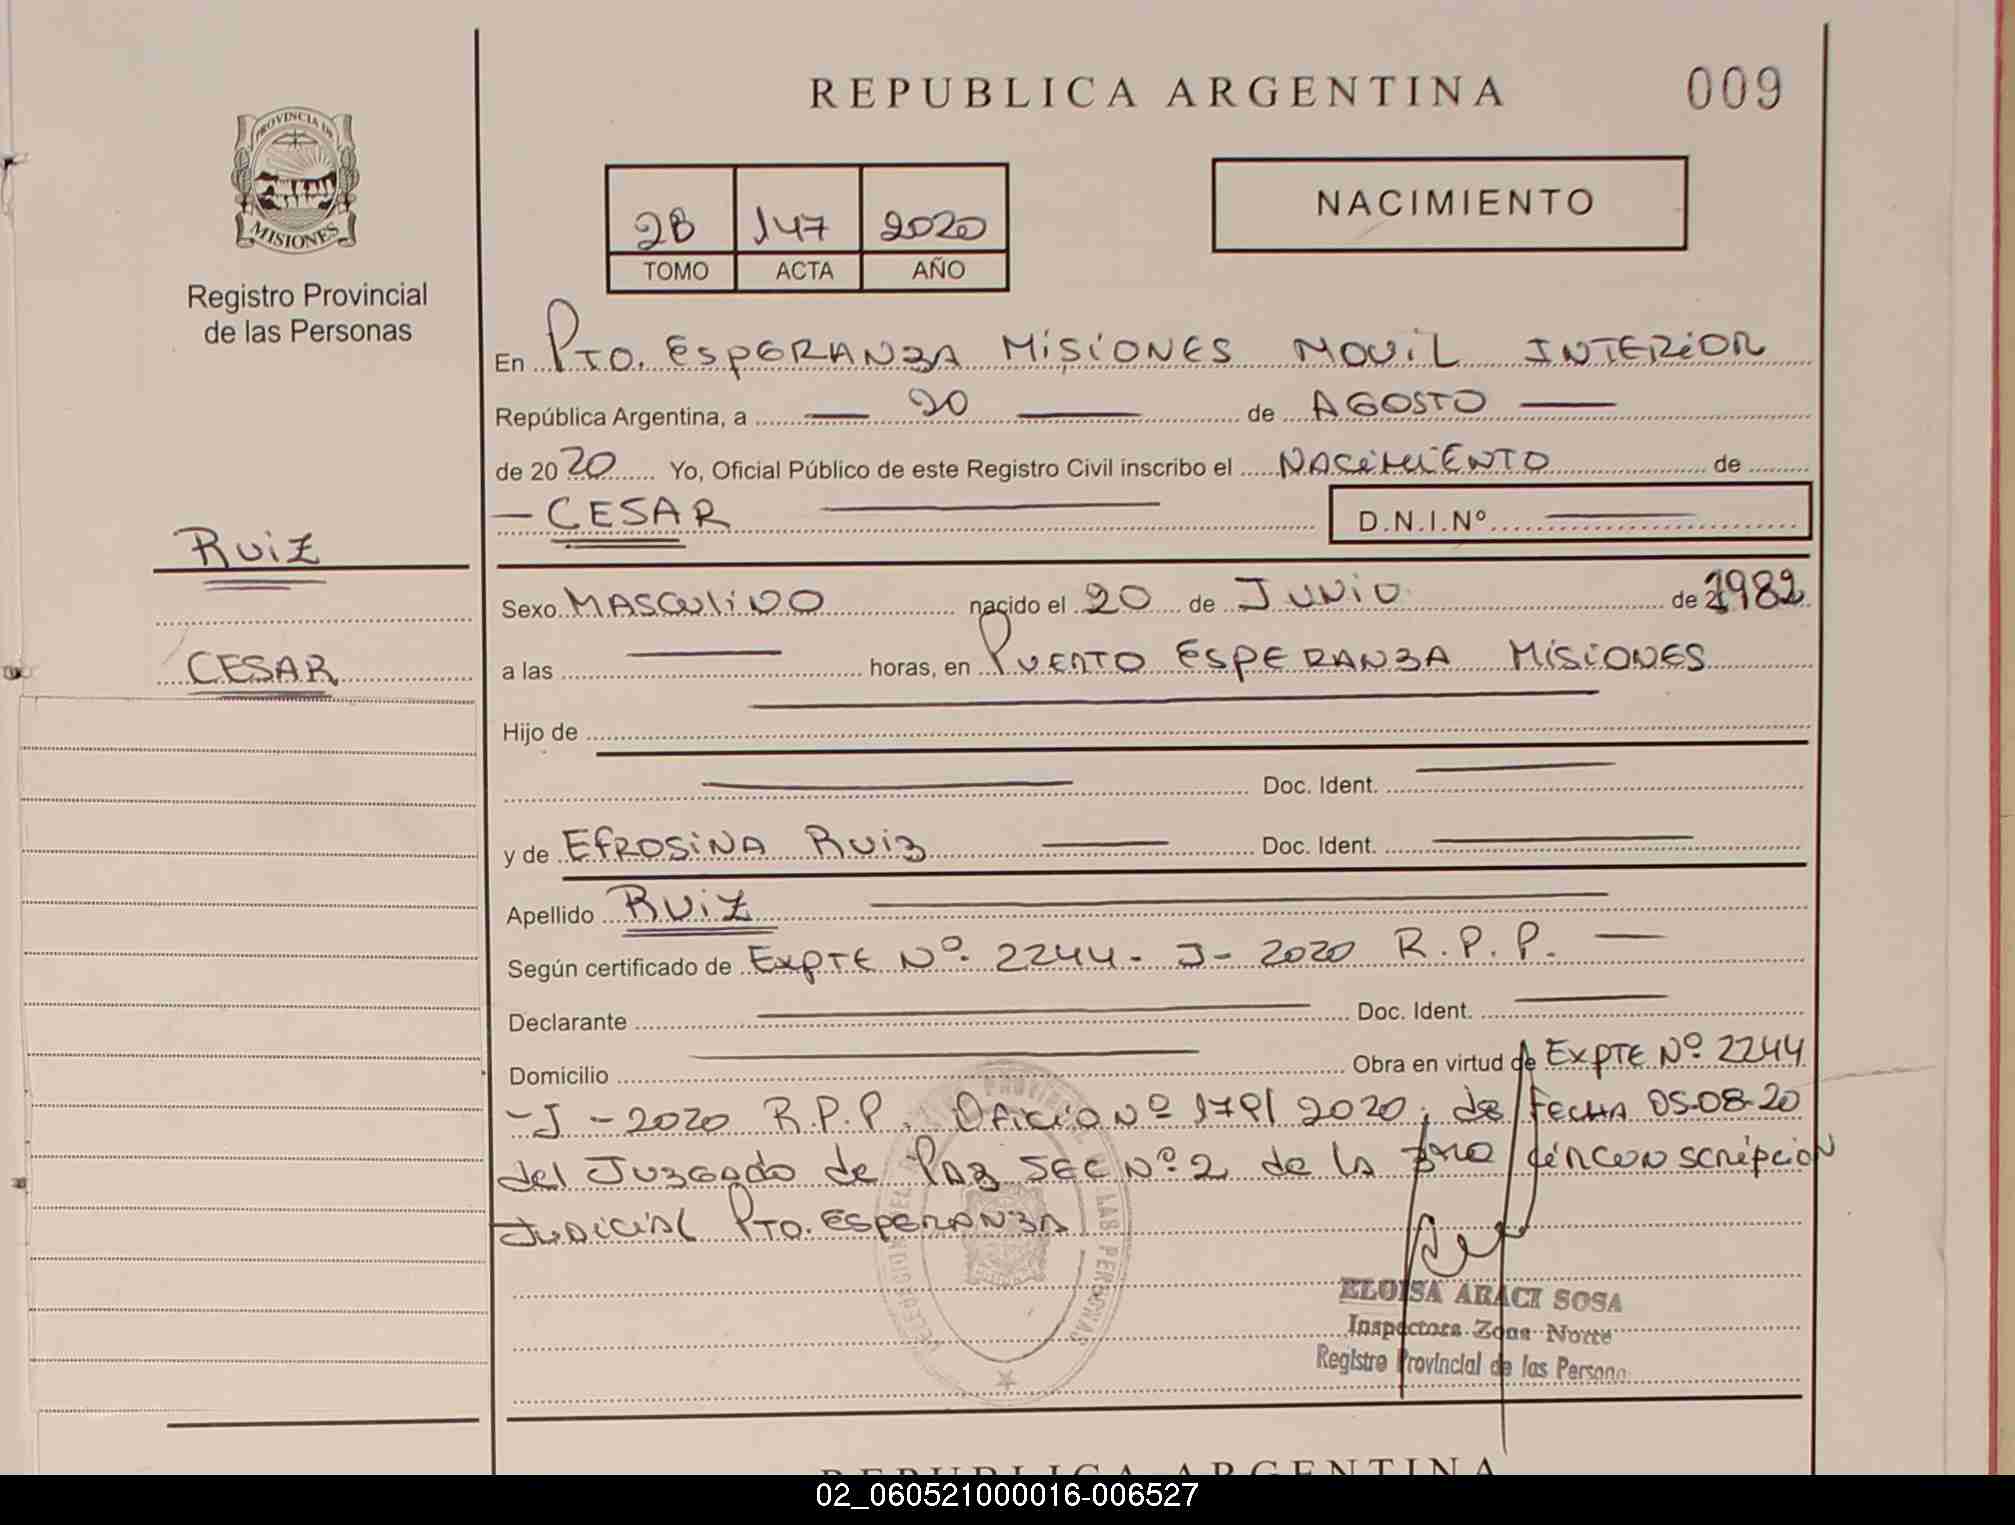 REPUBLICA ARGENTINA
009
PROVINCIA DE
MISIONES
Registro Provincial
de las Personas
2B 147 2020
TOMO ACTA AÑO
NACIMIENTO
En Pto. Esperanza Misiones Movil Interior
República Argentina, a — 20 — de Agosto —
de 2020 Yo, Oficial Público de este Registro Civil inscribo el Nacimiento de
— CESAR —
D.N.I.Nº —
Ruiz
CESAR
Sexo Masculino nacido el 20 de Junio de 1982
a las — horas, en Puerto Esperanza Misiones
Hijo de —
— Doc. Ident. —
y de Efrosina Ruiz — Doc. Ident. —
Apellido Ruiz —
Según certificado de Expte Nº 2244 - J - 2020 R.P.P. —
Declarante — Doc. Ident. —
Domicilio — Obra en virtud de Expte Nº 2244
- J - 2020 R.P.P. Oficio Nº 179/2020, de Fecha 05-08-20
del Juzgado de Paz Sec Nº 2 de la 3ra circunscripcion
Judicial Pto. Esperanza
ELOISA ARACI SOSA
Inspectora Zona Norte
Registro Provincial de las Persona
REPUBLICA ARGENTINA
02_060521000016-006527